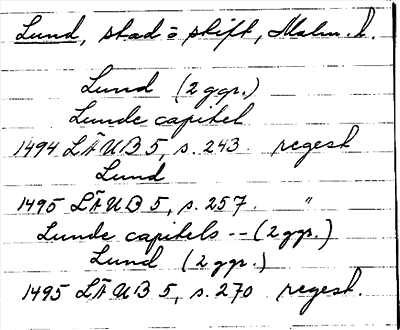 Lund, stad o stift, Malm. l.
Lund (2 ggr.)
Lunde capitel
1494 LÄUB 5, s. 243. regest
Lund
1495 LÄUB 5, s. 257. "
Lunde capitels -- (2 ggr.)
Lund (2 ggr.)
1495 LÄUB 5, s. 270 regest.